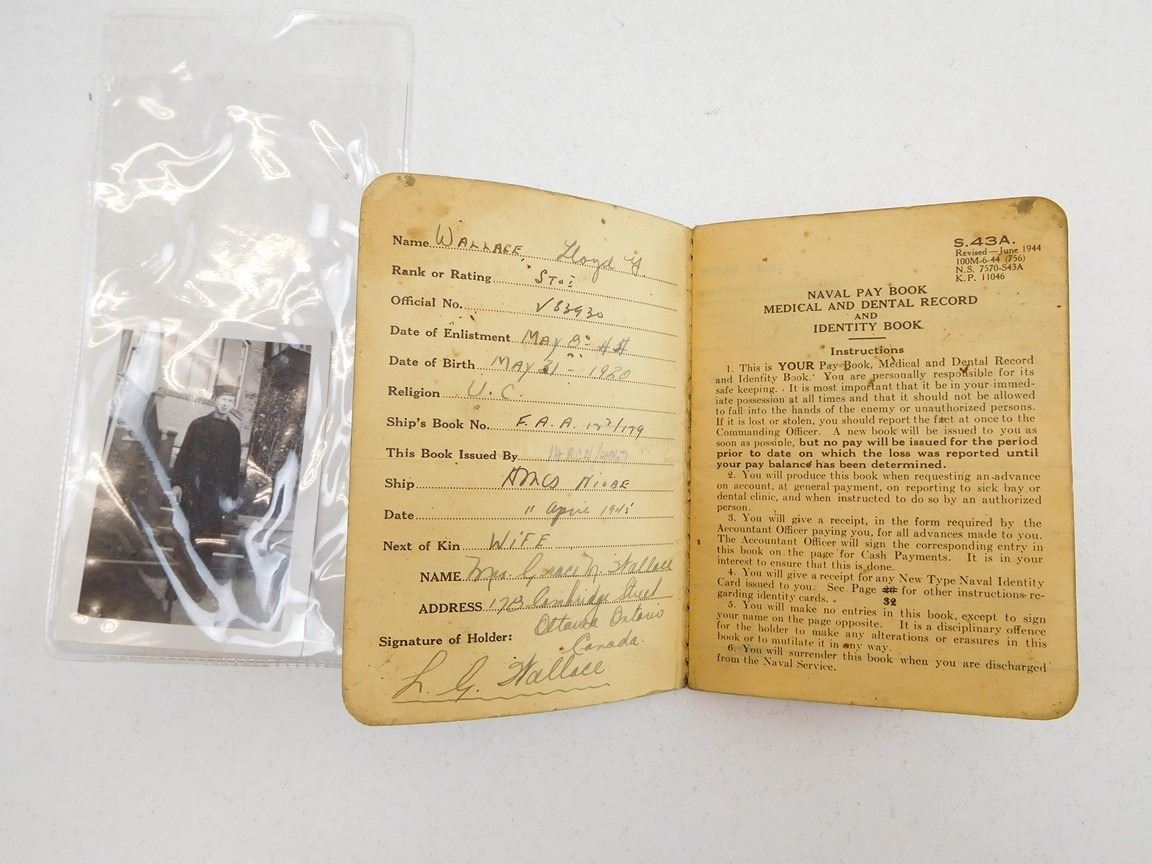 Name WALLACE, Lloyd G.
Rank or Rating Sto I
Official No. V63930
Date of Enlistment MAY 8
Date of Birth MAY 31 - 1920
Religion U.C.
Ship's Book No. F.A.A. /179
This Book Issued By
Ship HMCS NIOBE
Date 11 April 1945
Next of Kin WIFE
NAME Mrs Grace M Wallace
ADDRESS Cambridge Street
Ottawa Ontario
Canada.
Signature of Holder:
L. G. Wallace
S.43A.
Revised—June 1944
100M-6-44 (756)
N.S. 7570-S43A
K.P. 11046
NAVAL PAY BOOK
MEDICAL AND DENTAL RECORD
AND
IDENTITY BOOK
Instructions
1. This is YOUR Pay Book, Medical and Dental Record
and Identity Book. You are personally responsible for its
safe keeping. It is most important that it be in your immed-
iate possession at all times and that it should not be allowed
to fall into the hands of the enemy or unauthorized persons.
If it is lost or stolen, you should report the fact at once to the
Commanding Officer. A new book will be issued to you as
soon as possible, but no pay will be issued for the period
prior to date on which the loss was reported until
your pay balance has been determined.
2. You will produce this book when requesting an advance
on account, at general payment, on reporting to sick bay or
dental clinic, and when instructed to do so by an authorized
person.
3. You will give a receipt, in the form required by the
Accountant Officer paying you, for all advances made to you.
The Accountant Officer will sign the corresponding entry in
this book on the page for Cash Payments. It is in your
interest to ensure that this is done.
4. You will give a receipt for any New Type Naval Identity
Card issued to you. See Page 32 for other instructions re-
garding identity cards.
5. You will make no entries in this book, except to sign
your name on the page opposite. It is a disciplinary offence
for the holder to make any alterations or erasures in this
book or to mutilate it in any way.
6. You will surrender this book when you are discharged
from the Naval Service.